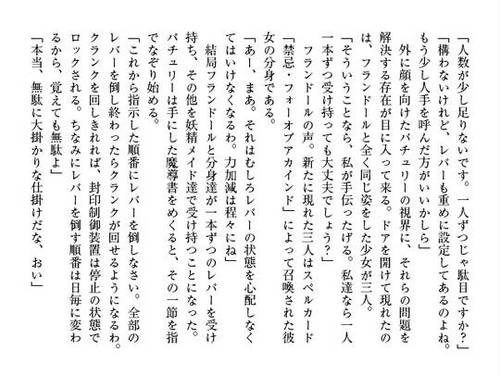 「人数が少し足りないです。一人ずつじゃ駄目ですか?」
「構わないけれど、レバーも重めに設定してあるのよね。
もう少し人手を呼んだ方がいいかしら」
　外に顔を向けたパチュリーの視界に、それらの問題を
解決する存在が目に入って来る。ドアを開けて現れたの
は、フランドールと全く同じ姿をした少女が三人。
「そういうことなら、私が手伝ったげる。私達なら一人
一本ずつ受け持っても大丈夫でしょう?」
　フランドールの声。新たに現れた三人はスペルカード
「禁忌・フォーオブアカインド」によって召喚された彼
女の分身である。
「あー、まあ。それはむしろレバーの状態を心配しなく
てはいけなくなるわ。力加減は程々にね」
　結局フランドールと分身達が一本ずつのレバーを受け
持ち、その他を妖精メイド達で受け持つことになった。
パチュリーは手にした魔導書をめくると、その一節を指
でなぞり始める。
「これから指示した順番にレバーを倒しなさい。全部の
レバーを倒し終わったらクランクが回せるようになるわ。
クランクを回しきれれば、封印制御装置は停止の状態で
ロックされる。ちなみにレバーを倒す順番は日毎に変わ
るから、覚えても無駄よ」
「本当、無駄に大掛かりな仕掛けだな、おい」